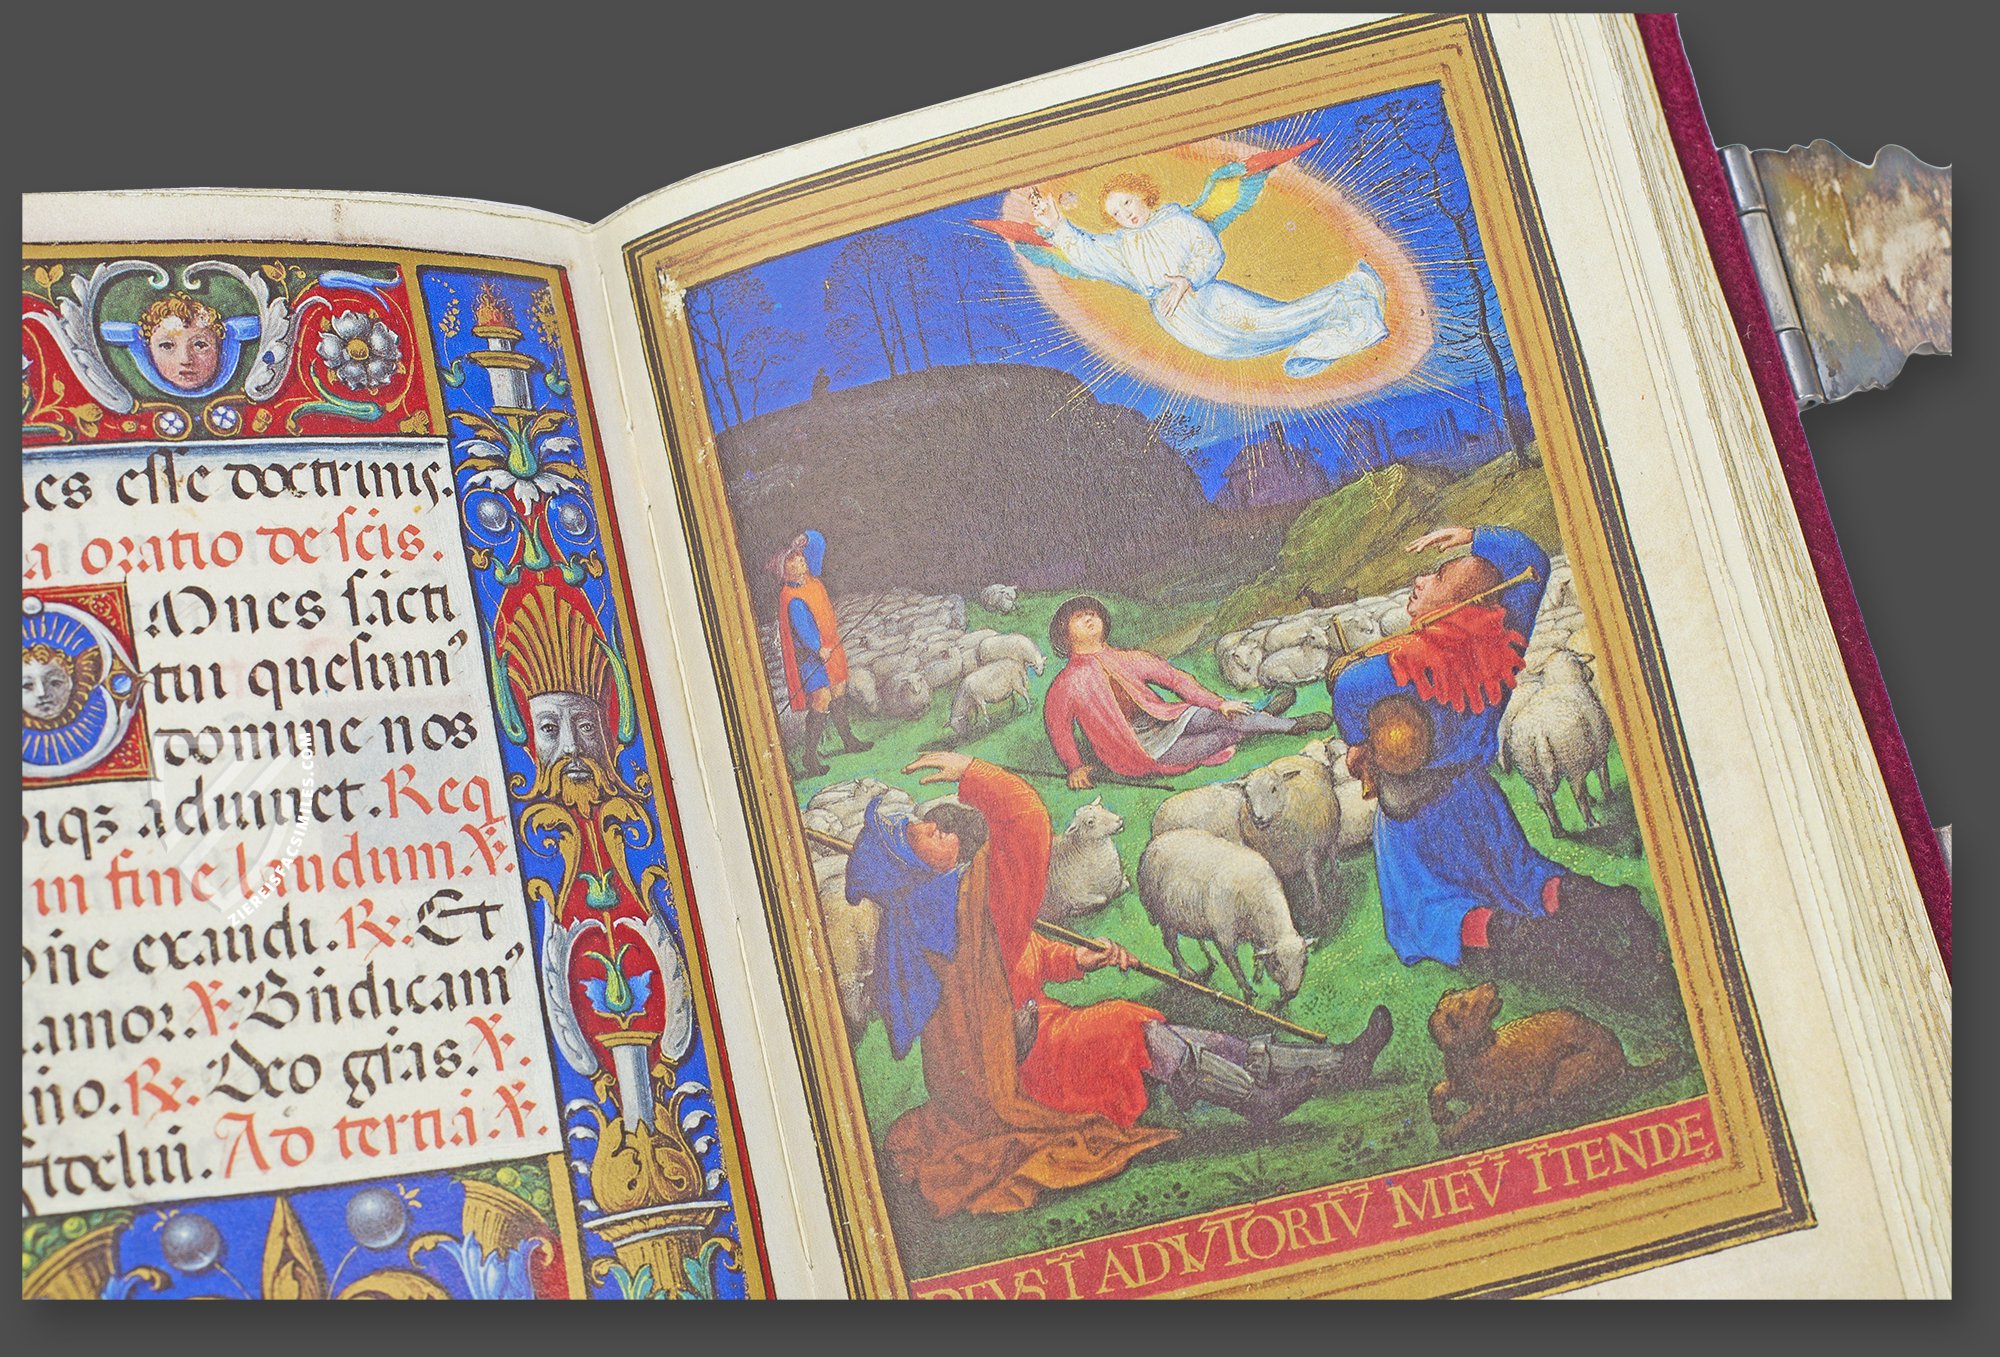 es esse doctrinis.
a oratio de scis.
Omnes sācti
tui quesumꝰ
domine nos
ubiqꝫ adiuuet. Req
in fine laudum. ℣.
Dñe exaudi. ℟. Et
clamor. ℣. Bñdicamꝰ
dño. ℟. Deo grās. ℣.
Fidelium. Ad tertiā. ℣.
DEVS Ī ADIVTORIV̄ MEV̄ ĪTENDE
ZIEREISFACSIMILES.COM